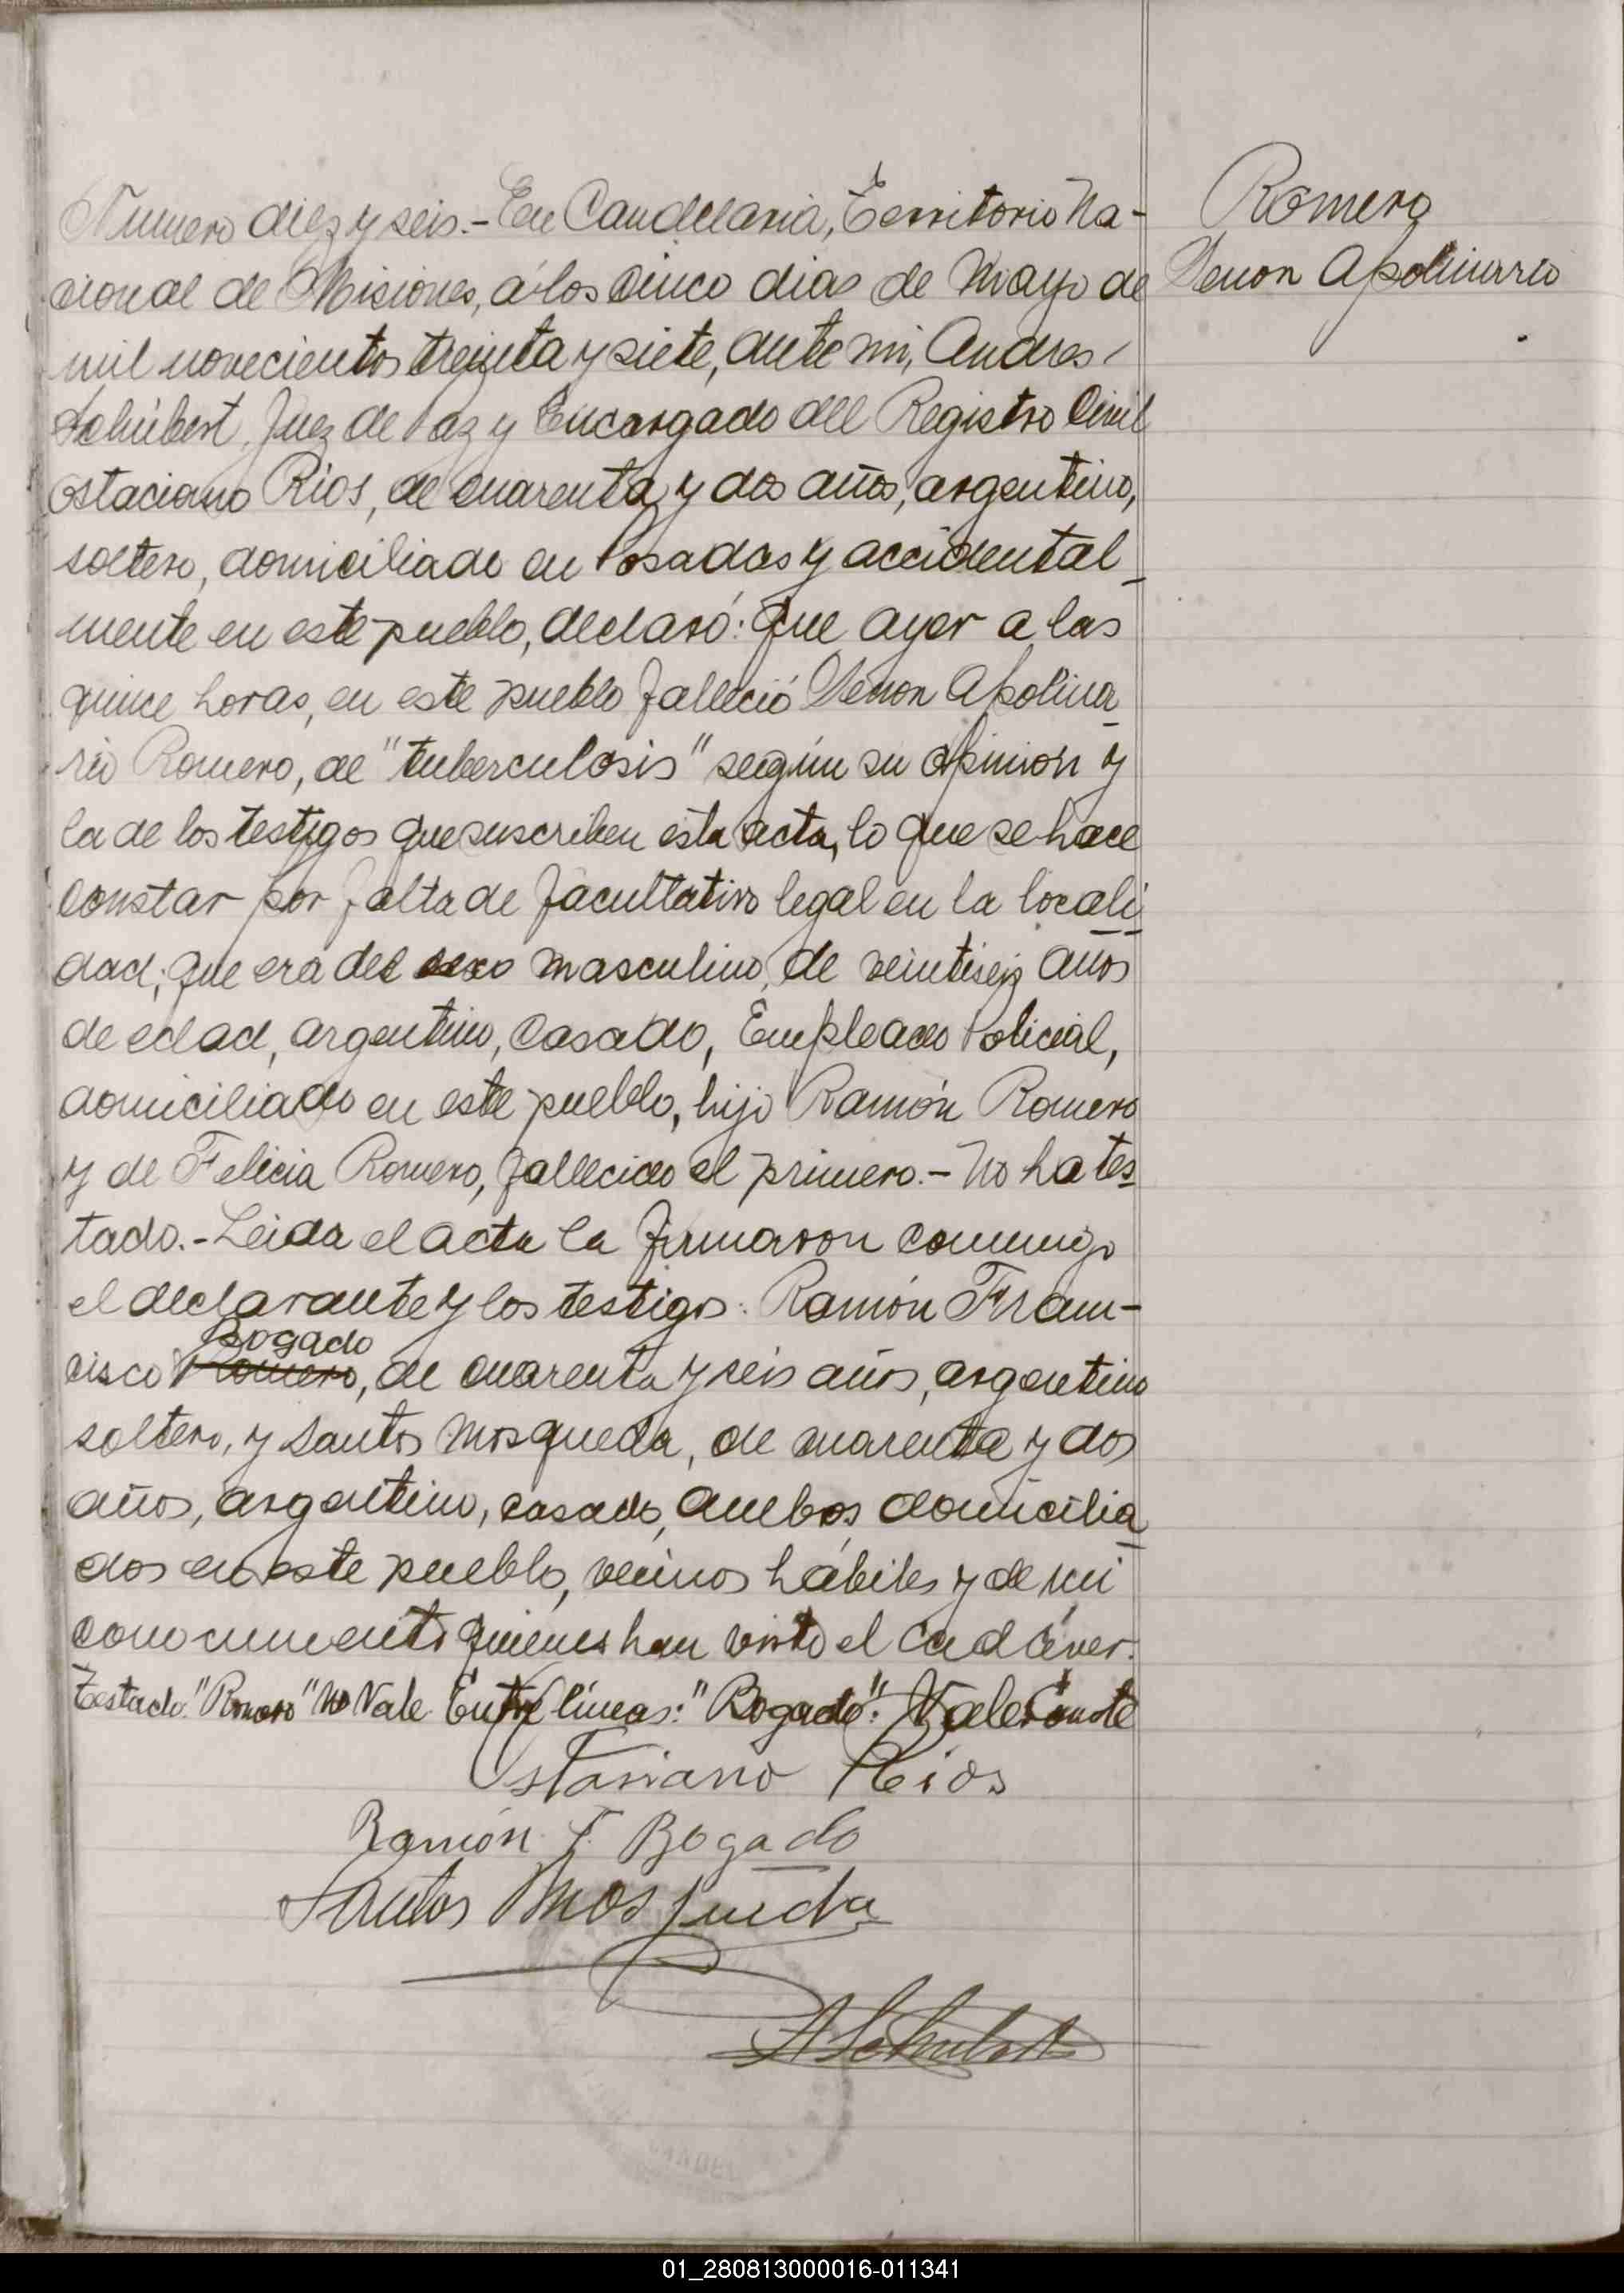 Romero
Senon Apolinario
Numero diez y seis.- En Candelaria, Territorio Na-
cional de Misiones, á los cinco dias de Mayo de
mil novecientos treinta y siete, ante mi, Andres
Schubert, Juez de Paz y Encargado del Registro Civil
Ostaciano Rios, de cuarenta y dos años, argentino,
soltero, domiciliado en Posadas y accidental-
mente en este pueblo, declaró: Que ayer a las
quince horas, en este pueblo falleció Senon Apolina-
rio Romero, de "tuberculosis" según su opinion y
la de los testigos que suscriben esta acta, lo que se hace
constar por falta de facultativo legal en la locali-
dad; que era del sexo masculino, de veintiseis años
de edad, argentino, casado, Empleado Policial,
domiciliado en este pueblo, hijo Ramón Romero
y de Felicia Romero, fallecido el primero.- No ha tes-
tado.- Leida el acta la firmaron conmigo
el declarante y los testigos: Ramón Fran-
Bogado
cisco Romero, de cuarenta y seis años, argentino
soltero, y Santos Mosqueda, de cuarenta y dos
años, argentino, casado, ambos domicilia-
dos en este pueblo, vecinos hábiles y de mi
conocimiento quienes han visto el cadáver.
Testado: "Romero" No Vale. Entre líneas: "Bogado": Vale. Conste
Ostasiano Rios
Ramón F. Bogado
Santos Mosqueda
ASchubert
01_280813000016-011341